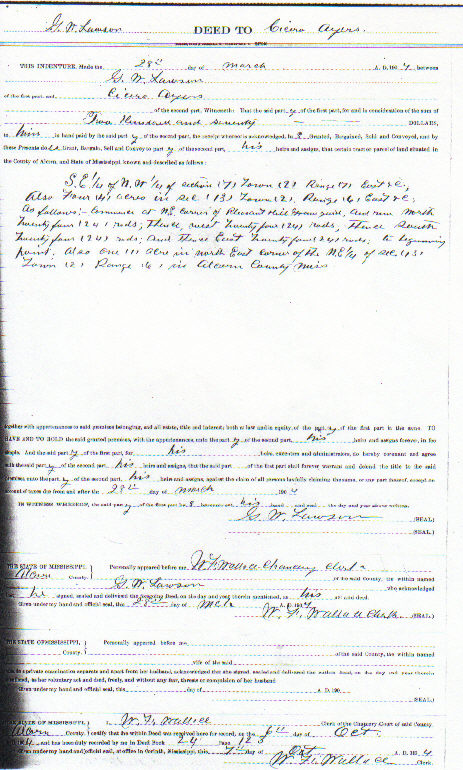 G. W. Lawson DEED TO Cicero Ayers.
THIS INDENTURE, Made the 28th day of March A. D. 1904 between
G. W. Lawson
of the first part, and Cicero Ayers
of the second part, Witnesseth: That the said party of the first part, for and in consideration of the sum of
Two Hundred and seventy DOLLARS,
to him in hand paid by the said party of the second part, the receipt whereof is acknowledged, has Granted, Bargained, Sold and Conveyed, and by
these Presents do Grant, Bargain, Sell and Convey to party of the second part, his heirs and assigns, that certain tract or parcel of land situated in
the County of Alcorn, and State of Mississippi known and described as follows:
S.E. 1/4 of N.W 1/4 of section (7) Town (2) Range (7) East &c,
Also Four (4) acres in sec (13) Town (2), Range (6) East &c
As follows:- Commence at N.E. Corner of Pleasant Hill Grave yard, and run North
Twenty four (24) rods, Thence, west Twenty four (24) rods, Thence South
Twenty four (24) rods, And Thence East Twenty four (24) rods, to beginning
point. Also one (1) Acre in North East Corner of the N.E 1/4 of sec (13)
Town (2) Range (6) in Alcorn County Miss
together with appurtenances to said premises belonging, and all estate, title and interest; both at law and in equity, of the party of the first part in the same. TO
HAVE AND TO HOLD the said granted premises, with the appurtenances, unto the party of the second part, his heirs and assigns forever, in fee
simple. And the said party of the first part, for his heirs, executors and administrators, do hereby covenant and agree
with the said party of the second part, his heirs and assigns, that the said part of the first part shall forever warrant and defend the title to the said
premises unto the party of the second part, his heirs and assigns, against the claim of all persons lawfully claiming the same, or any part thereof, except on
account of taxes due from and after the 28th day of March 1904
IN WITNESS WHEREOF, the said party of the first part has hereunto set his hand and seal the day and year above written.
G. W. Lawson (SEAL)
(SEAL)
THE STATE OF MISSISSIPPI,
Alcorn County. Personally appeared before me W. F. Wallace Chancery Clerk
of the said County, the within named
G. W. Lawson who acknowledged
that he signed, sealed and delivered the foregoing Deed on the day and year therein mentioned, as his act and deed.
Given under my hand and official seal, this 28th day of Mch A. D. 1904
W. F. Wallace Clerk (SEAL)
THE STATE OF MISSISSIPPI, Personally appeared before me
County. of the said County, the within named
wife of the said
who, in private examination separate and apart from her husband, acknowledged that she signed, sealed and delivered the within Deed, on the day and year therein
mentioned, as her voluntary act and deed, freely, and without any fear, threats or compulsion of her husband
Given under my hand and official seal, this day of A. D. 190
(SEAL)
THE STATE OF MISSISSIPPI, I, W. F. Wallace Clerk of the Chancery Court of said County
Alcorn County. certify that the within Deed was received here for record, on the day of Oct
and has been duly recorded by me in Deed Book 24 Page 123
Given under my hand and official seal, at office in Corinth, Mississippi, this 7th day of Oct A. D. 1904
W. F. Wallace Clerk.